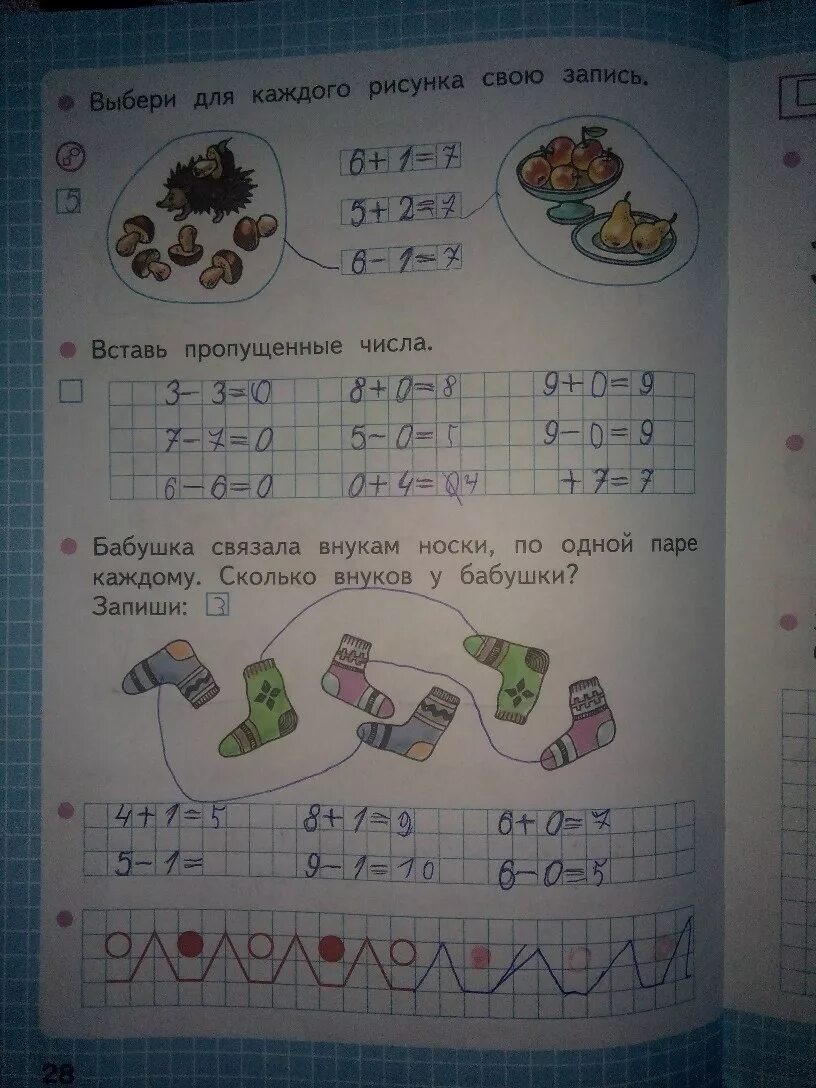 Выбери для каждого рисунка свою запись.
5
6+1=7
5+2=7
6-1=7
Вставь пропущенные числа.
3-3=0 8+0=8 9+0=9
7-7=0 5-0=5 9-0=9
6-6=0 0+4=4 +7=7
Бабушка связала внукам носки, по одной паре
каждому. Сколько внуков у бабушки?
Запиши: 3
4+1=5 8+1=9 6+0=7
5-1= 9-1=10 6-0=5
28